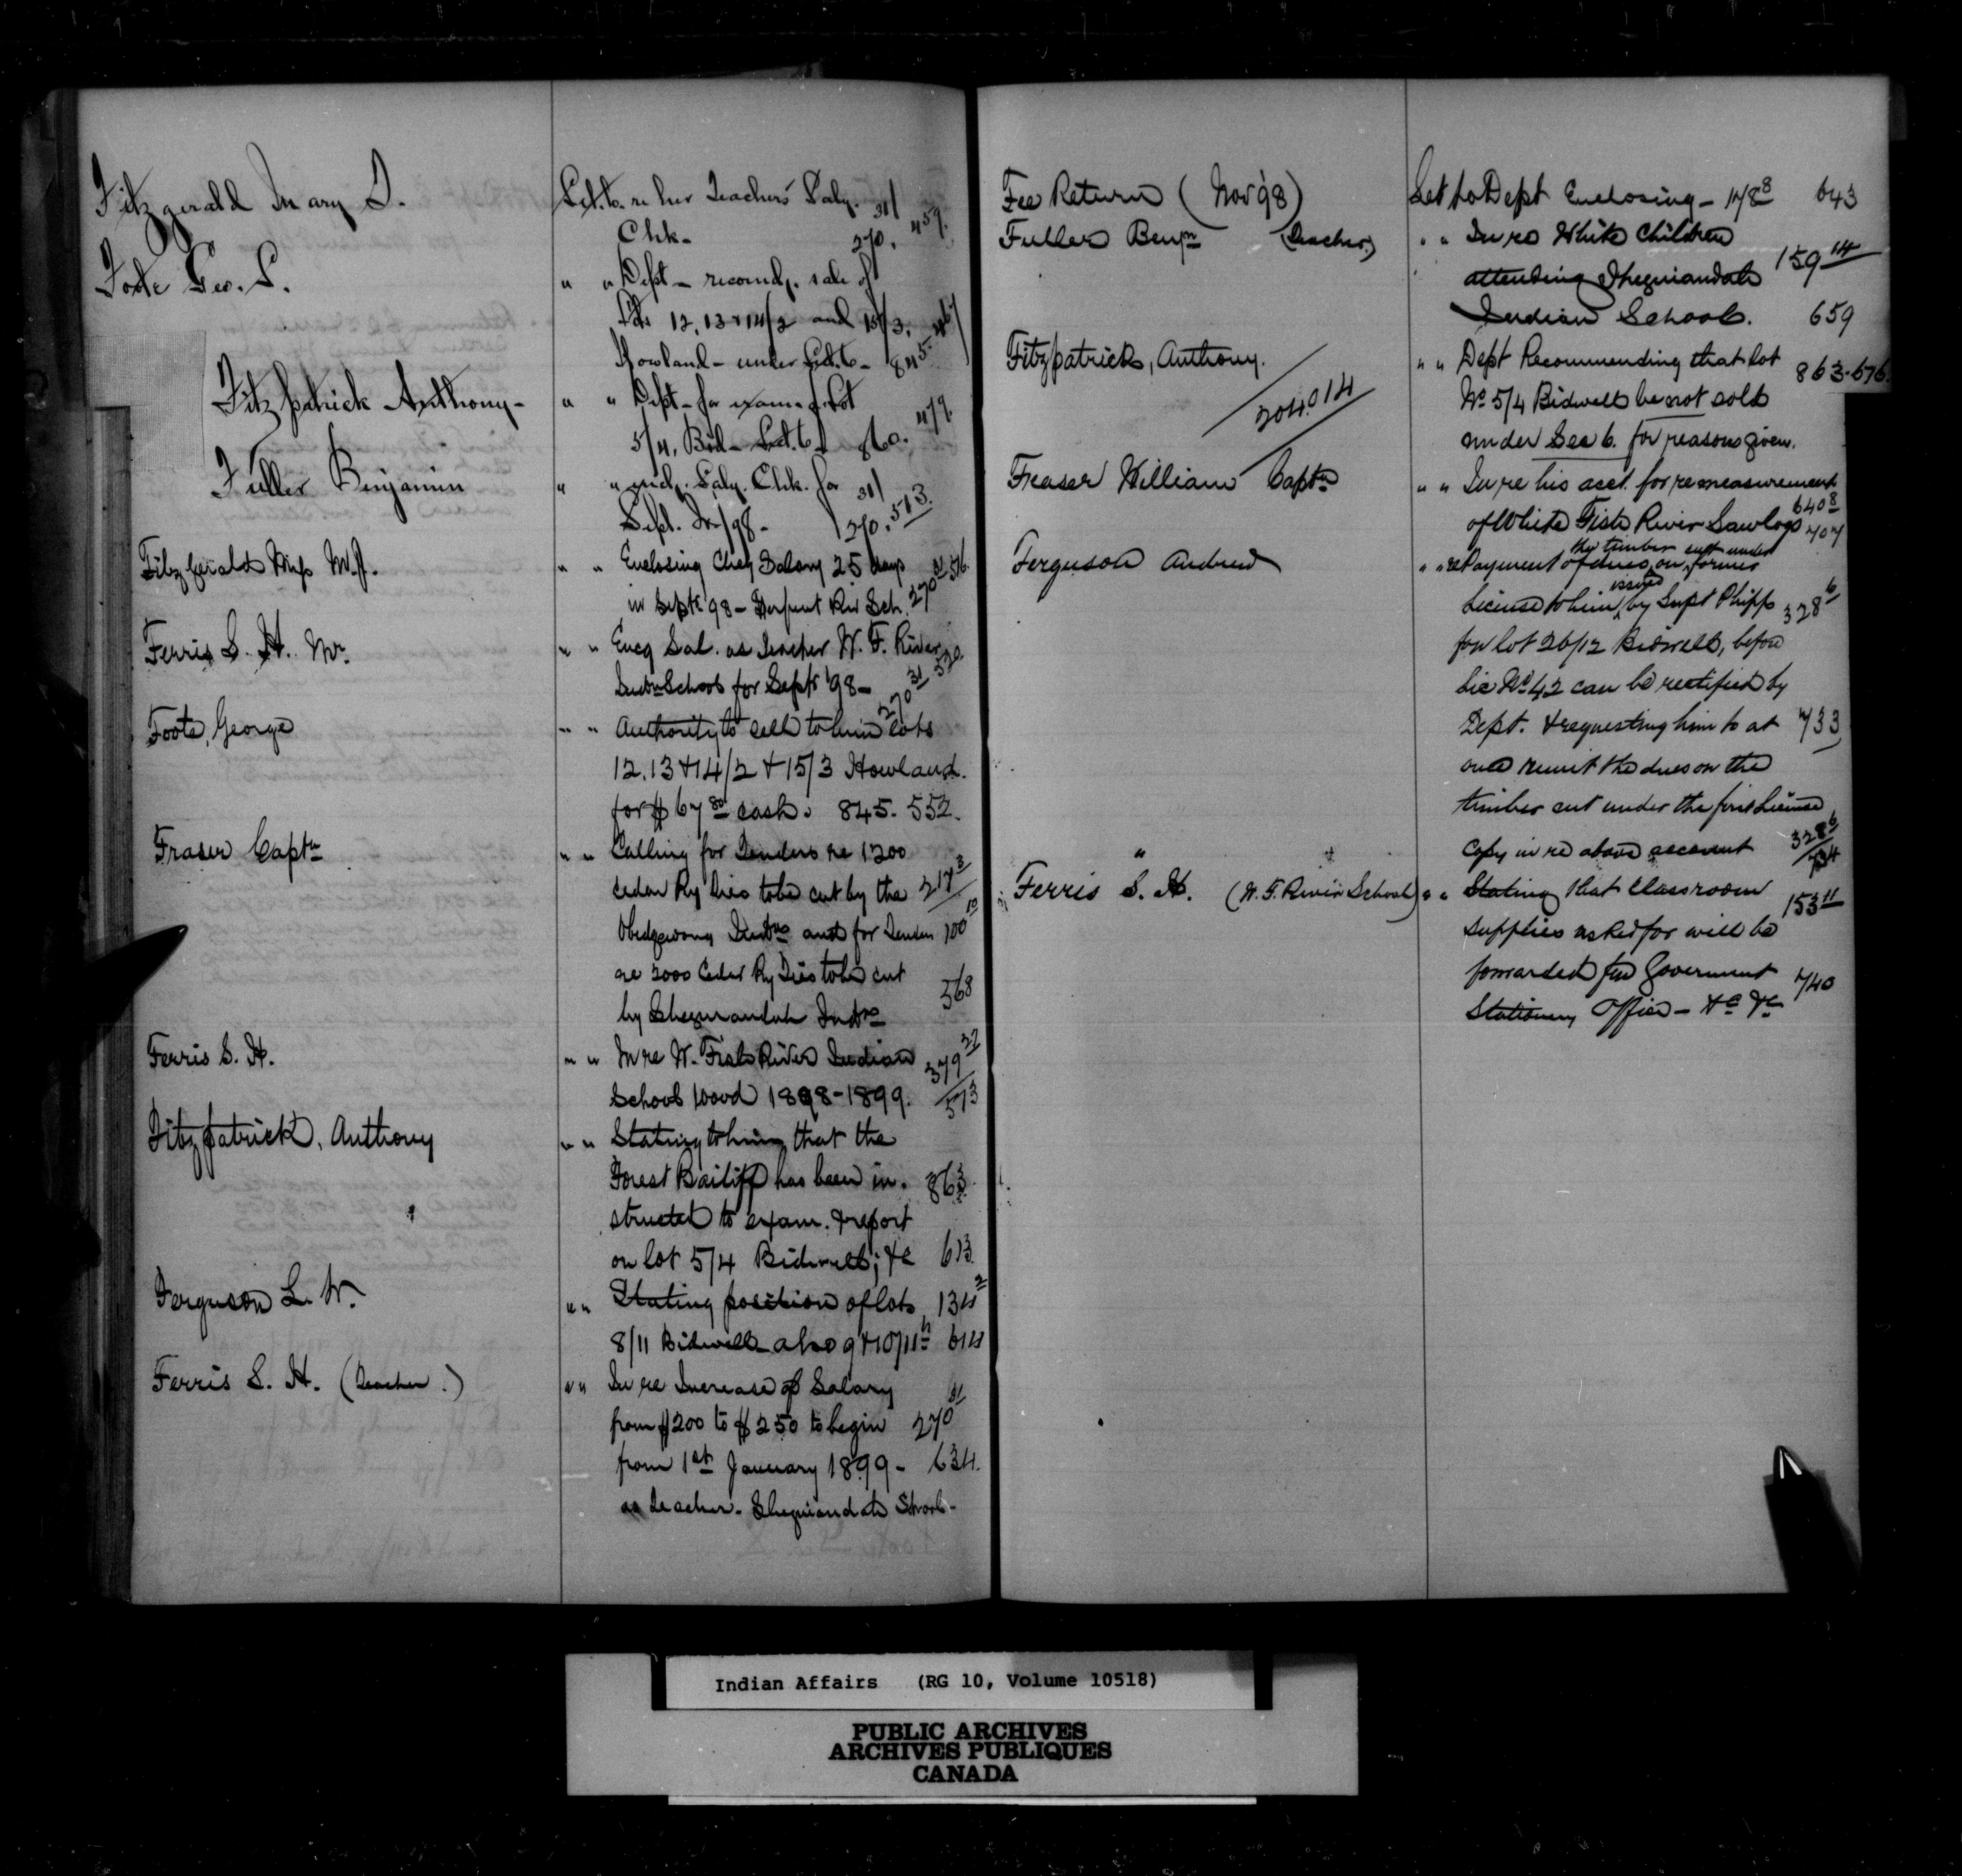 Fitzgerald Mary J. Let. to. re her Teachers' Saly. 31/
Chk- 270. 459.
Foote Geo. S. " " Dept - recomdg. sale of
Lots 12, 13 & 14/2 and 15/3,
Howland - under Let. to - 845. 467
Fitzpatrick Anthony - " " Dept - for exam. of Lot
5/4, Bid - Let. to 860. 479.
Fuller Benjamin " " encl. Saly. Chk. for 31/
Sept. Qr/98 - 270. 513.
Fitzgerald Miss M.J. " " Enclosing Cheq Salary 25 days
in Sept 98 - Serpent Riv Sch. 270 31 516.
Ferris S. H. Mr. " " Encg Sal. as Teacher W. F. River
Indn School for Sept '98 - 270 31 520.
Foote, George " " Authority to sell to him lots
12, 13 & 14/2 & 15/3 Howland.
for $67 80 cash. 845. 552.
Fraser Captn " " Calling for Tenders re 1200
cedar Ry Ties to be cut by the 217 3
Obidgewong Indns and for Tenders 100 10
re 2000 Cedar Ry Ties to be cut
by Sheguiandah Indns 568
Ferris S. H. " " In re W. Fish River Indian 379 27
School Wood 1898-1899. 573
Fitzpatrick, Anthony " " Stating to him that the
Forest Bailiff has been in- 863
structed to exam. & report
on lot 5/4 Bidwell; &c 613
Ferguson L. W. " " Stating position of lots 134 2
8/11 Bidwell also 9 & 10/11 614
Ferris S. H. (Teacher.) " " In re Increase of Salary
from $200 to $250 to begin 270 31
from 1st January 1899 - 634.
as Teacher. Sheguiandah School -
Fee Return (Nov '98) Let to Dept Enclosing - 178 8 643
Fuller Benjn (Teacher) " " In re White Children
attending Sheguiandah 159 14
Indian School. 659
Fitzpatrick, Anthony. " " Dept Recommending that lot 863-676.
204014 No 5/4 Bidwell be not sold
under Sec 6. for reasons given.
Fraser William Captn " " In re his acct. for remeasurement
of White Fish River Sawlogs 640 8 707
Ferguson Andrew " " re Payment of dues on the timber cut under former
License to him issued by Supt Phipps 328 6
for lot 26/12 Bidwell, before
Lic No 42 can be rectified by
Dept. & requesting him to at 733
once remit the dues on the
timber cut under the first License
" Copy in re above account 328 6 734
Ferris S. H. (W. F. River School) " " Stating that Classroom
supplies asked for will be 153 11
forwarded fm Goverment 740
Stationery Office - &c &c
Indian Affairs (RG 10, Volume 10518)
PUBLIC ARCHIVES
ARCHIVES PUBLIQUES
CANADA